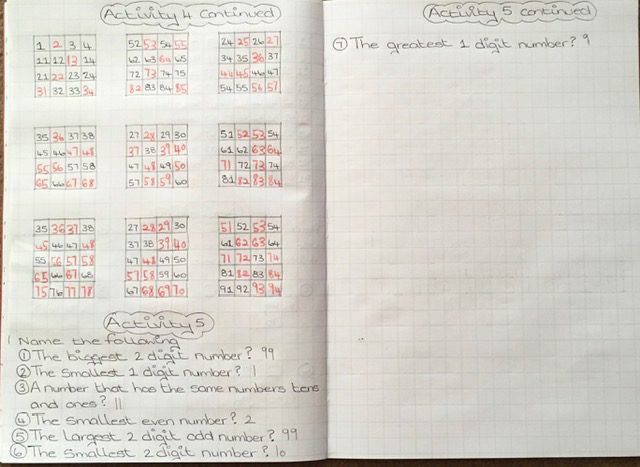 Activity 4 continued
1 2 3 4 52 53 54 55 24 25 26 27
11 12 13 14 62 63 64 65 34 35 36 37
21 22 23 24 72 73 74 75 44 45 46 47
31 32 33 34 82 83 84 85 54 55 56 57
35 36 37 38 27 28 29 30 51 52 53 54
45 46 47 48 37 38 39 40 61 62 63 64
55 56 57 58 47 48 49 50 71 72 73 74
65 66 67 68 57 58 59 60 81 82 83 84
35 36 37 38 27 28 29 30 51 52 53 54
45 46 47 48 37 38 39 40 61 62 63 64
55 56 57 58 47 48 49 50 71 72 73 74
65 66 67 68 57 58 59 60 81 82 83 84
75 76 77 78 67 68 69 70 91 92 93 94
Activity 5
Name the following
① The biggest 2 digit number? 99
② The smallest 1 digit number? 1
③ A number that has the same numbers tens
and ones? 11
④ The smallest even number? 2
⑤ The largest 2 digit odd number? 99
⑥ The smallest 2 digit number? 10
Activity 5 continued
⑦ The greatest 1 digit number? 9